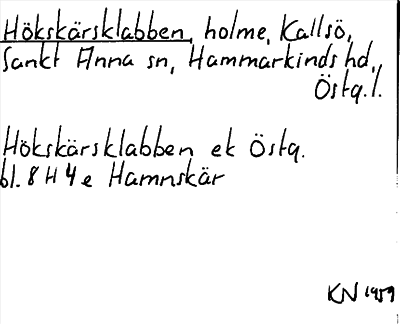 Hökskärsklabben, holme, Kallsö,
Sankt Anna sn, Hammarkinds hd,
Östg.l.
Hökskärsklabben ek Östg.
bl. 8 H 4 e Hamnskär
KN 1959